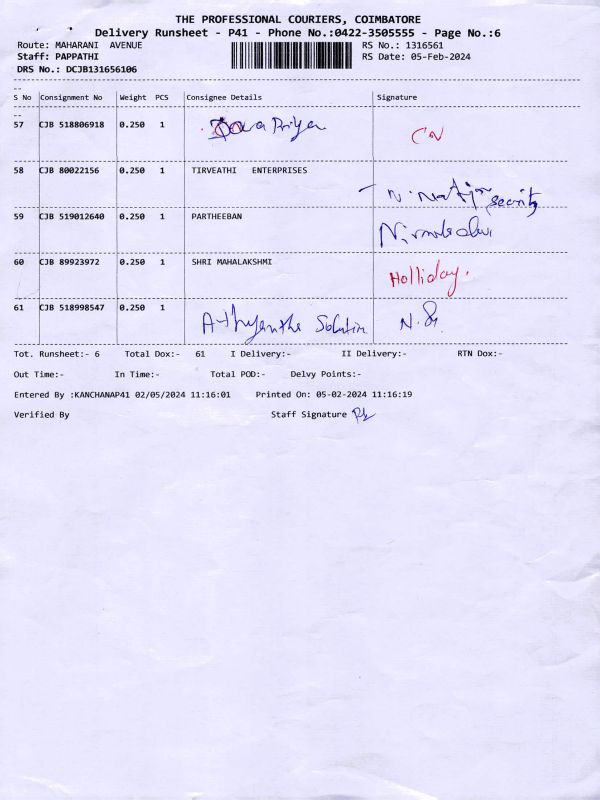 THE PROFESSIONAL COURIERS, COIMBATORE
Delivery Runsheet - P41 - Phone No.:0422-3505555 - Page No.:6
Route: MAHARANI AVENUE RS No.: 1316561
Staff: PAPPATHI RS Date: 05-Feb-2024
DRS No.: DCJB131656106
S No Consignment No Weight PCS Consignee Details Signature
57 CJB 518806918 0.250 1 Priya CN
58 CJB 80022156 0.250 1 TIRVEATHI ENTERPRISES
security
59 CJB 519012640 0.250 1 PARTHEEBAN
60 CJB 89923972 0.250 1 SHRI MAHALAKSHMI
Holliday.
61 CJB 518998547 0.250 1
Tot. Runsheet:- 6 Total Dox:- 61 I Delivery:- II Delivery:- RTN Dox:-
Out Time:- In Time:- Total POD:- Delvy Points:-
Entered By :KANCHANAP41 02/05/2024 11:16:01 Printed On: 05-02-2024 11:16:19
Verified By Staff Signature